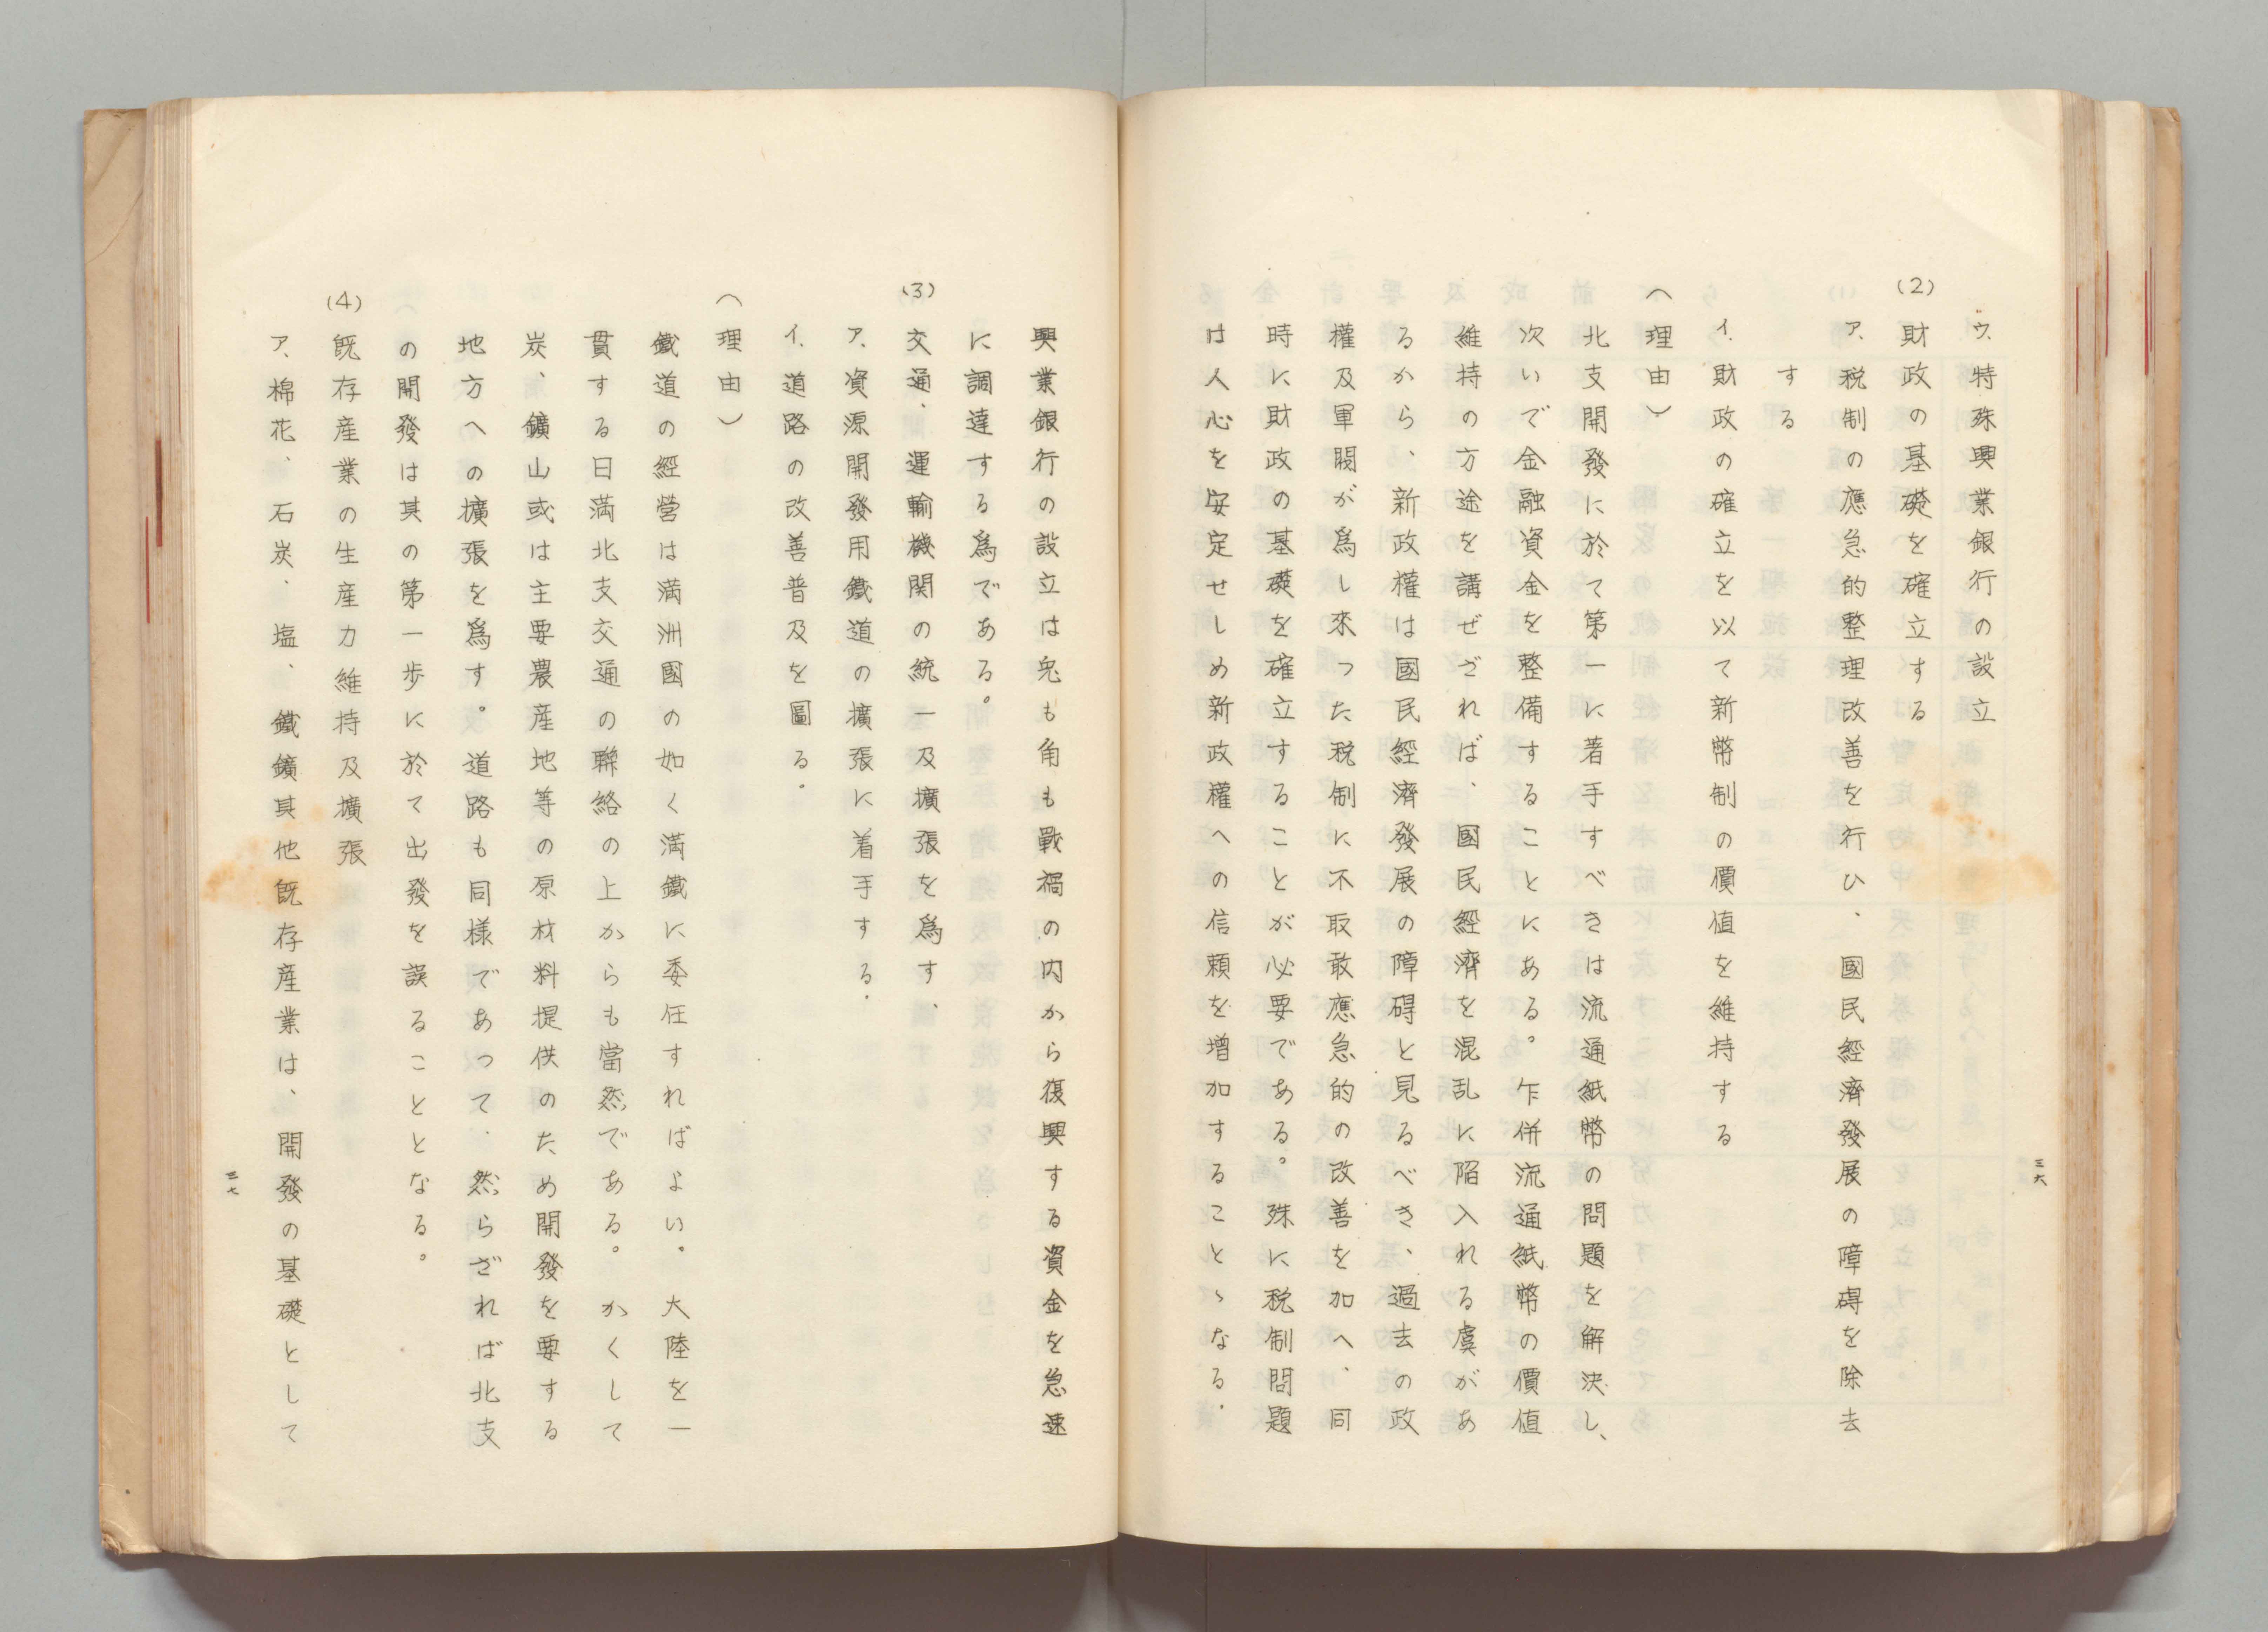 ウ、特殊興業銀行の設立
(2)
財政の基礎を確立する
ア、税制の應急的整理改善を行ひ、國民經濟發展の障碍を除去
する
イ、財政の確立を以て新幣制の價値を維持する
(理由)
北支開發に於て第一に著手すべきは流通紙幣の問題を解決し、
次いで金融資金を整備することにある。乍併流通紙幣の價値
維持の方途を講ぜざれば、國民經濟を混乱に陥入れる虞があ
るから、新政權は國民經濟發展の障碍と見るべき、過去の政
權及軍閥が爲し來つた税制に不取敢應急的の改善を加へ、同
時に財政の基礎を確立することが必要である。殊に税制問題
は人心を安定せしめ新政權への信頼を増加することゝなる。
三六
興業銀行の設立は兎も角も戰禍の内から復興する資金を急速
に調達する爲である。
(3)
交通、運輸機関の統一及擴張を爲す、
ア、資源開發用鐵道の擴張に着手する。
イ、道路の改善普及を圖る。
(理由)
鐵道の經營は満洲國の如く満鐵に委任すればよい。大陸を一
貫する日満北支交通の聯絡の上からも當然である。かくして
炭、鑛山或は主要農産地等の原材料提供のため開發を要する
地方への擴張を爲す。道路も同様であつて、然らざれば北支
の開發は其の第一歩に於て出發を誤ることとなる。
(4)
既存産業の生産力維持及擴張
ア、棉花、石炭、塩、鐵鑛其他既存産業は、開發の基礎として
三七